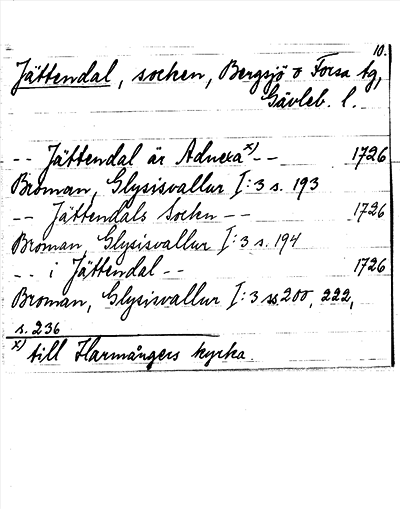 10.
Jättendal, socken, Bergsjö o Forsa tg,
Gävleb. l.
-- Jättendal är Adnexa x) -- 1726
Broman, Glysisvallur I:3 s. 193
-- Jättendals Sockn -- 1726
Broman, Glysisvallur I:3 s. 194
-- i Jättendal -- 1726
Broman, Glysisvallur I:3 ss 200, 222,
s. 236
x) till Harmångers kyrka.